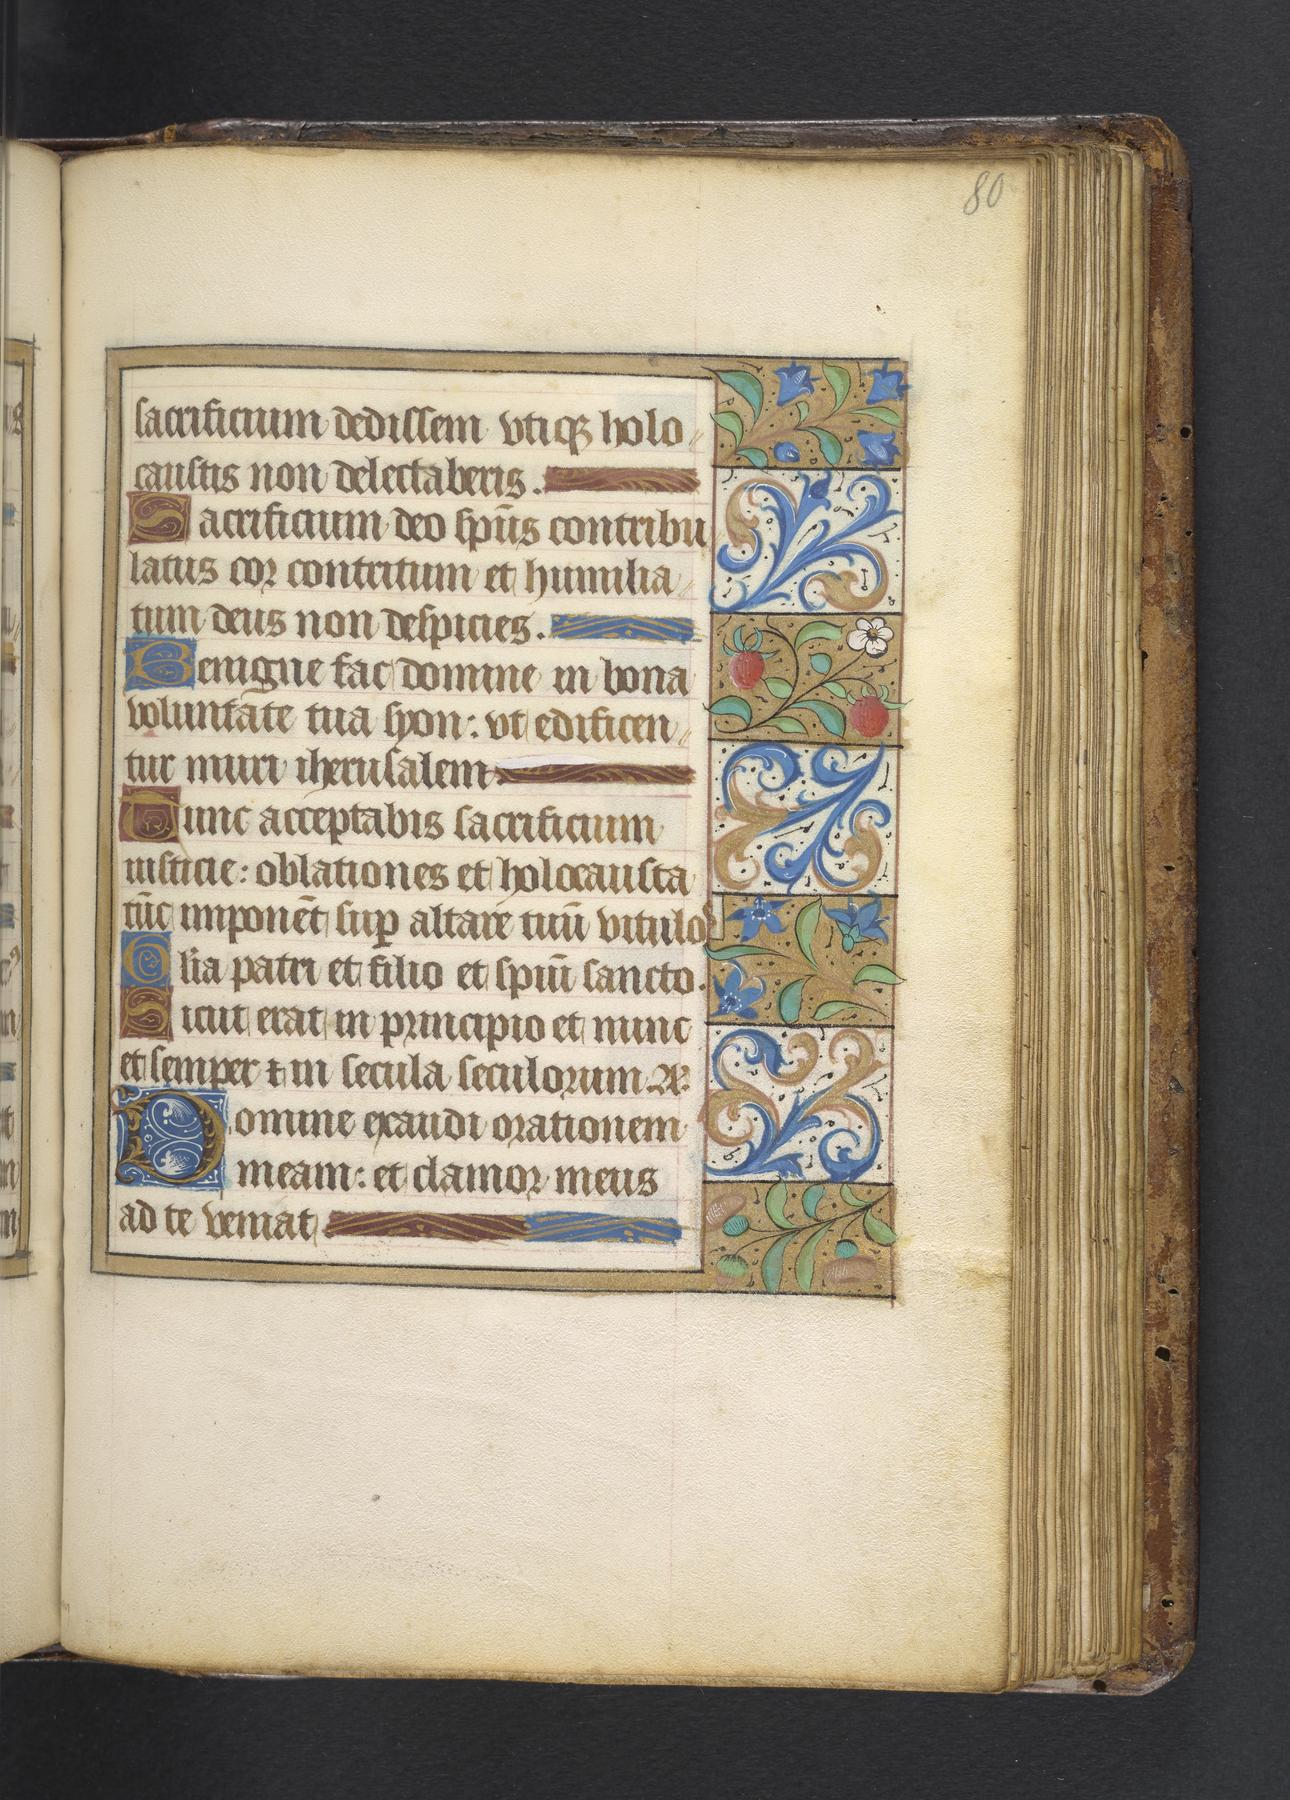 80
sacrificium dedissem vtiqꝫ holo〃
caustis non delectaberis.
Sacrificium deo sp̄us contribu
latus cor contritum et humilia〃
tum deus non despicies.
Benigne fac domine in bona
voluntāte tua syon: vt edificen〃
tur muri iherusalem
Tunc acceptabis sacrificium
iusticie: oblationes et holocausta
tūc imponēt suꝑ altare tuū vitulos
Glīa patri et filio et spiū sancto.
Sicut erat in principio et nunc
et semper ⁊ in secula seculorum. Am̄
Domine exaudi orationem
meam: et clamor meus
ad te veniat